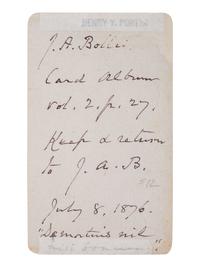 HENRY T. PORTER
J. A. Bolles.
Card Album
vol. 2. p. 27.
Keep & return
to J. A. B.
July 8, 1876.
"De mortuis nil
nisi bonum."